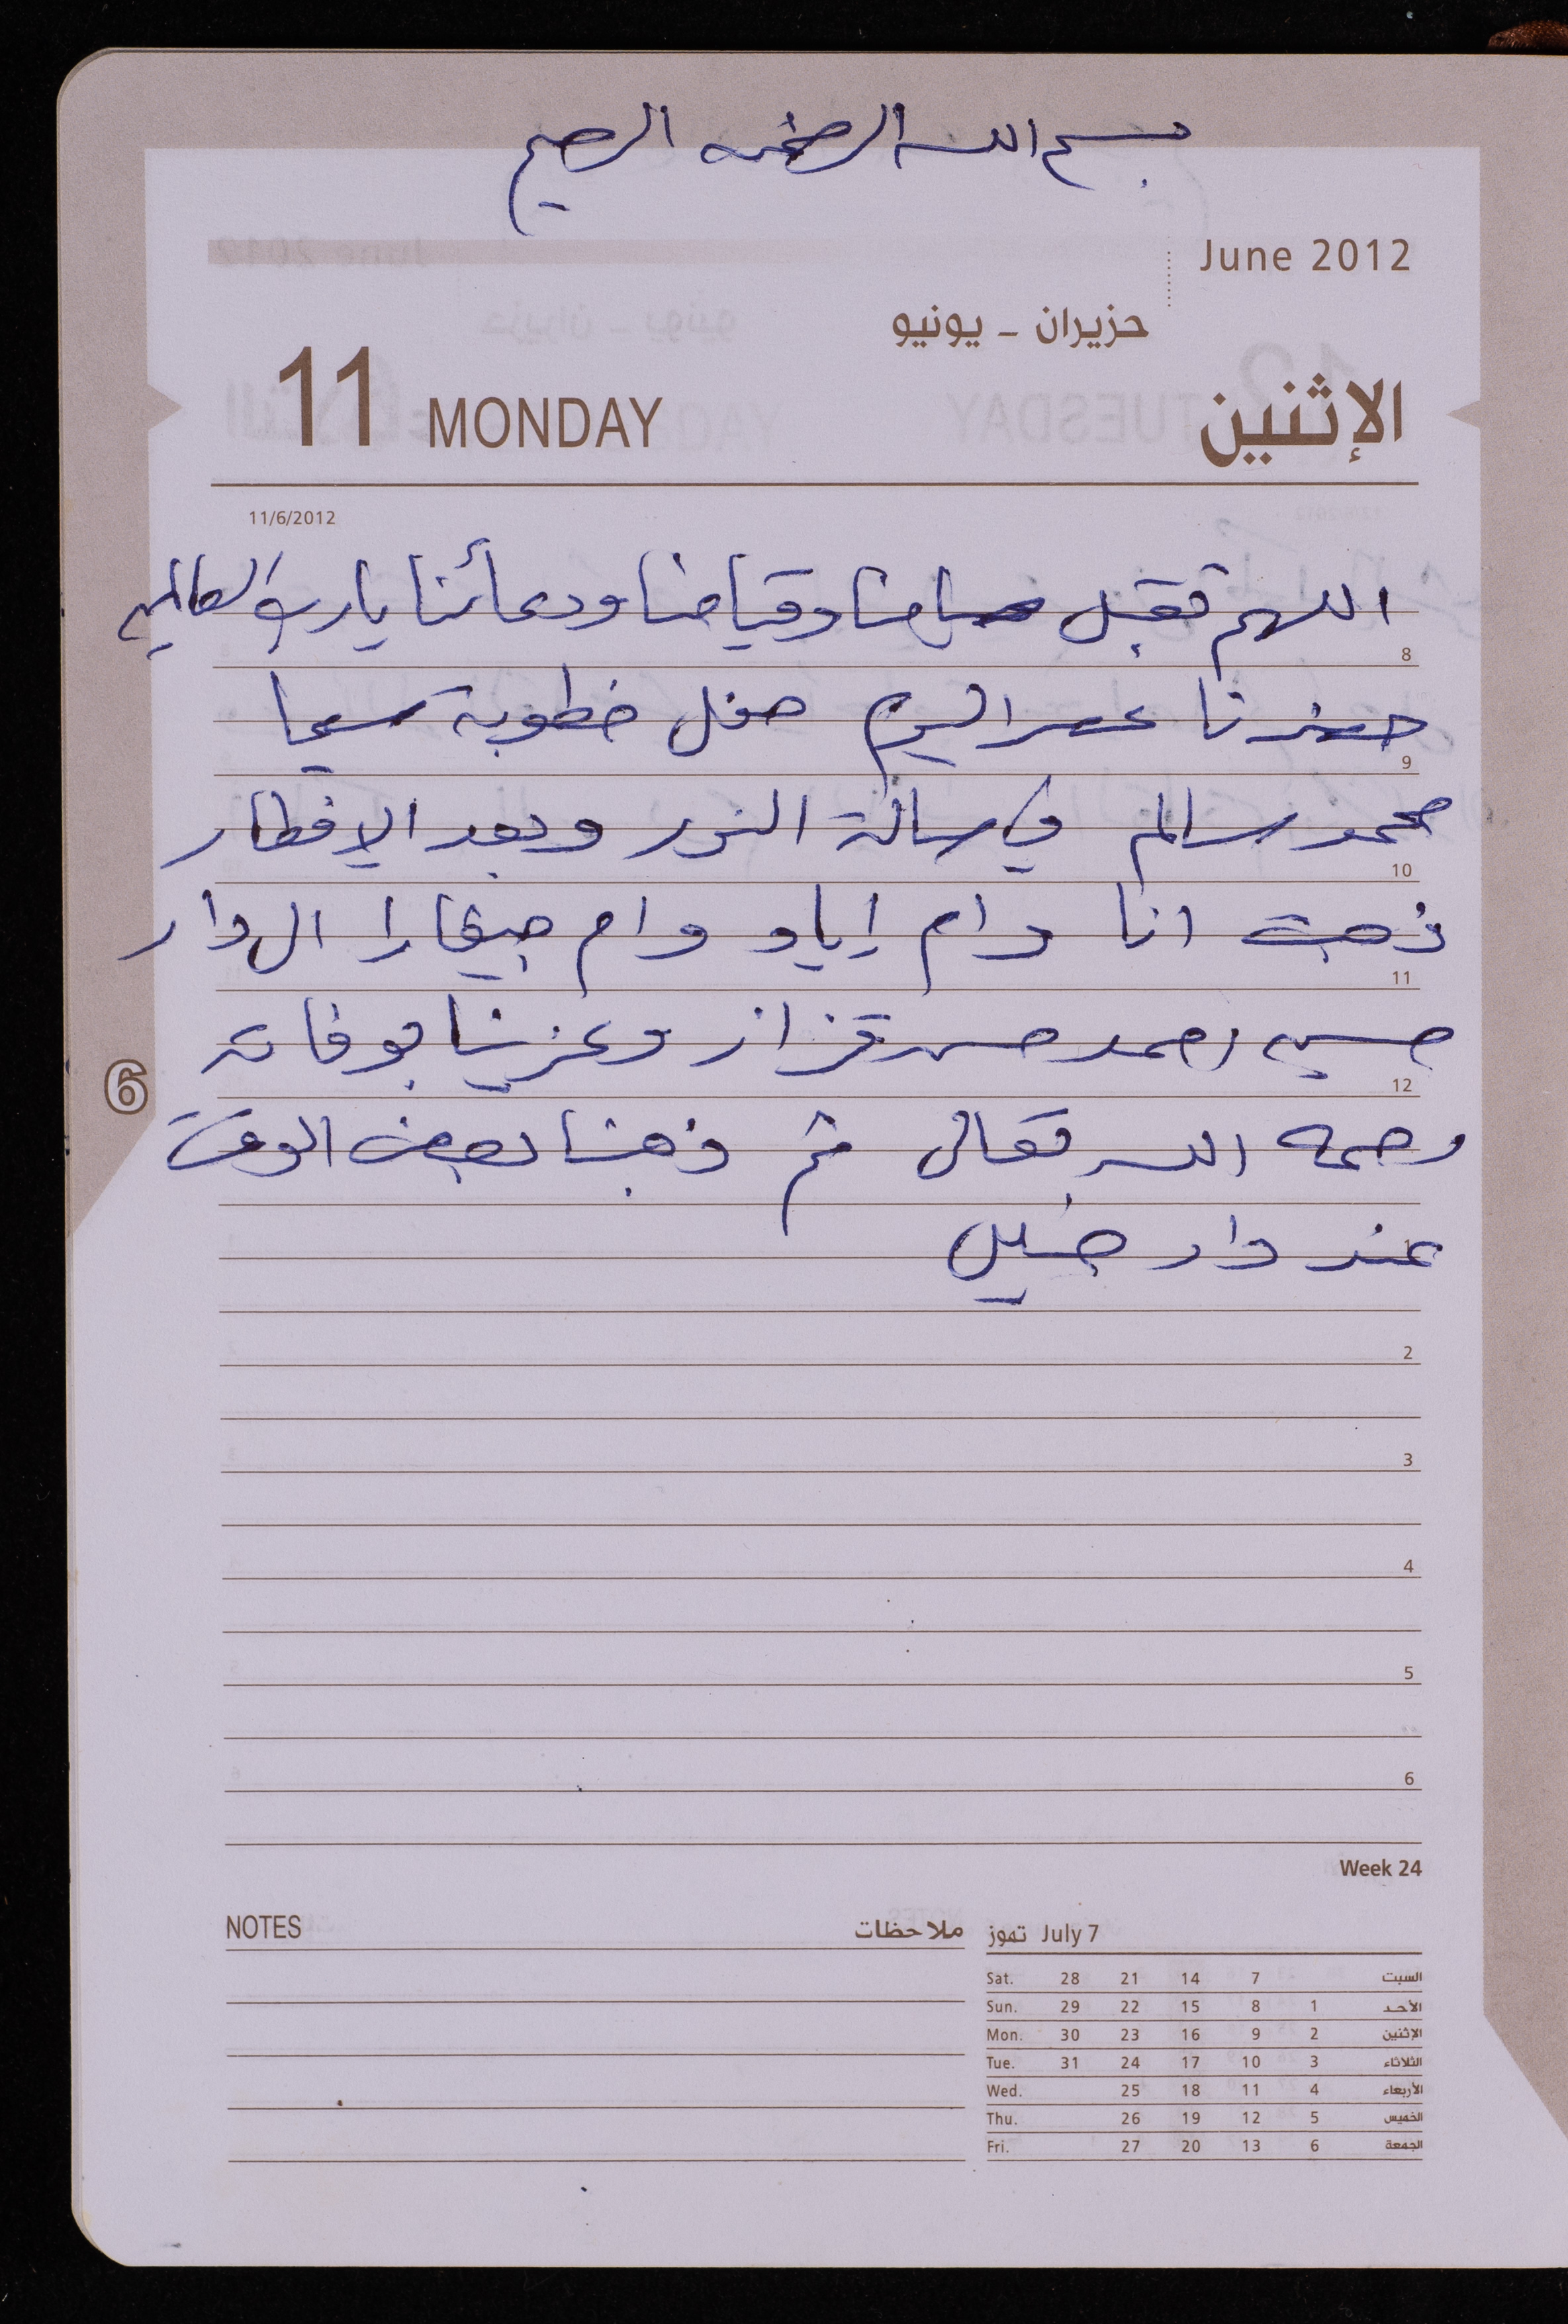 بسم الله الرحمن الرحيم
June 2012
حزيران - يونيو
11 MONDAY الإثنين
11/6/2012
اللهم تقبل صيامنا وقيامنا ودعائنا يا رب العالمين
8
حضرنا عصر اليوم حفل خطوبة
9
محمد سالم في صالة النور وبعد الافطار
10
ذهبت انا وام اياد وام جيفارا الى دار
11
حسين احمد حسن قزاز وعزينا بوفاته
6
12
رحمه الله تعالى ثم ذهبنا لبعض الوقت
1
عند دار
2
3
4
5
6
Week 24
NOTES ملاحظات
تموز July 7
Sat. 28 21 14 7 السبت
Sun. 29 22 15 8 1 الأحد
Mon. 30 23 16 9 2 الإثنين
Tue. 31 24 17 10 3 الثلاثاء
Wed. 25 18 11 4 الأربعاء
Thu. 26 19 12 5 الخميس
Fri. 27 20 13 6 الجمعة